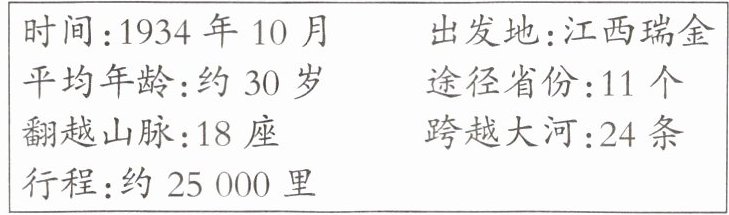 时间:1934 年 10 月 出发地:江西瑞金
平均年龄:约 30 岁 途径省份:11 个
翻越山脉:18 座 跨越大河:24 条
行程:约 25 000 里